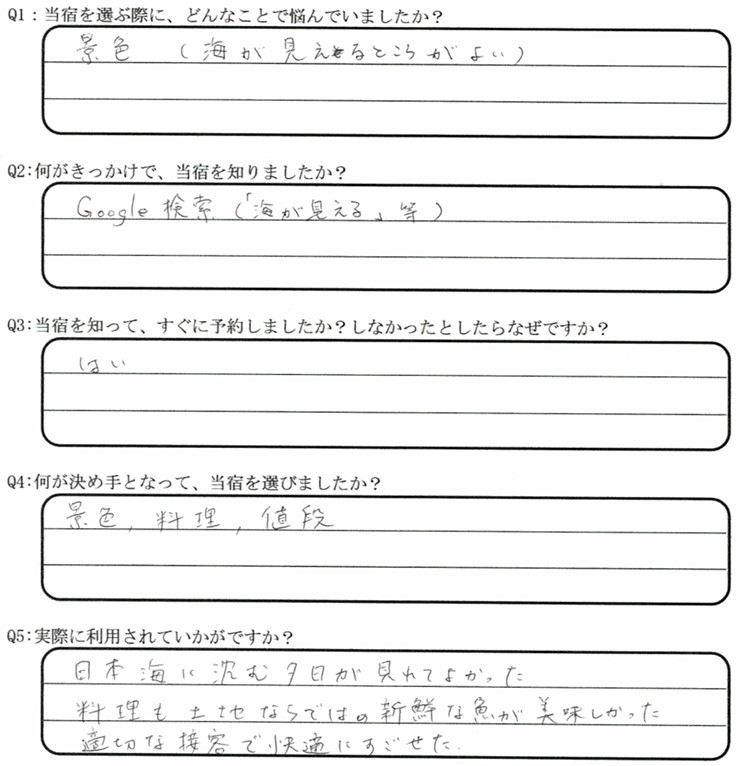 Q1：当宿を選ぶ際に、どんなことで悩んでいましたか？
景色 （海が見えるところがよい）
Q2:何がきっかけで、当宿を知りましたか？
Google検索（「海が見える」等）
Q3:当宿を知って、すぐに予約しましたか？しなかったとしたらなぜですか？
はい
Q4:何が決め手となって、当宿を選びましたか？
景色, 料理, 値段
Q5:実際に利用されていかがですか？
日本海に沈む夕日が見れてよかった
料理も土地ならではの新鮮な魚が美味しかった
適切な接客で快適にすごせた.